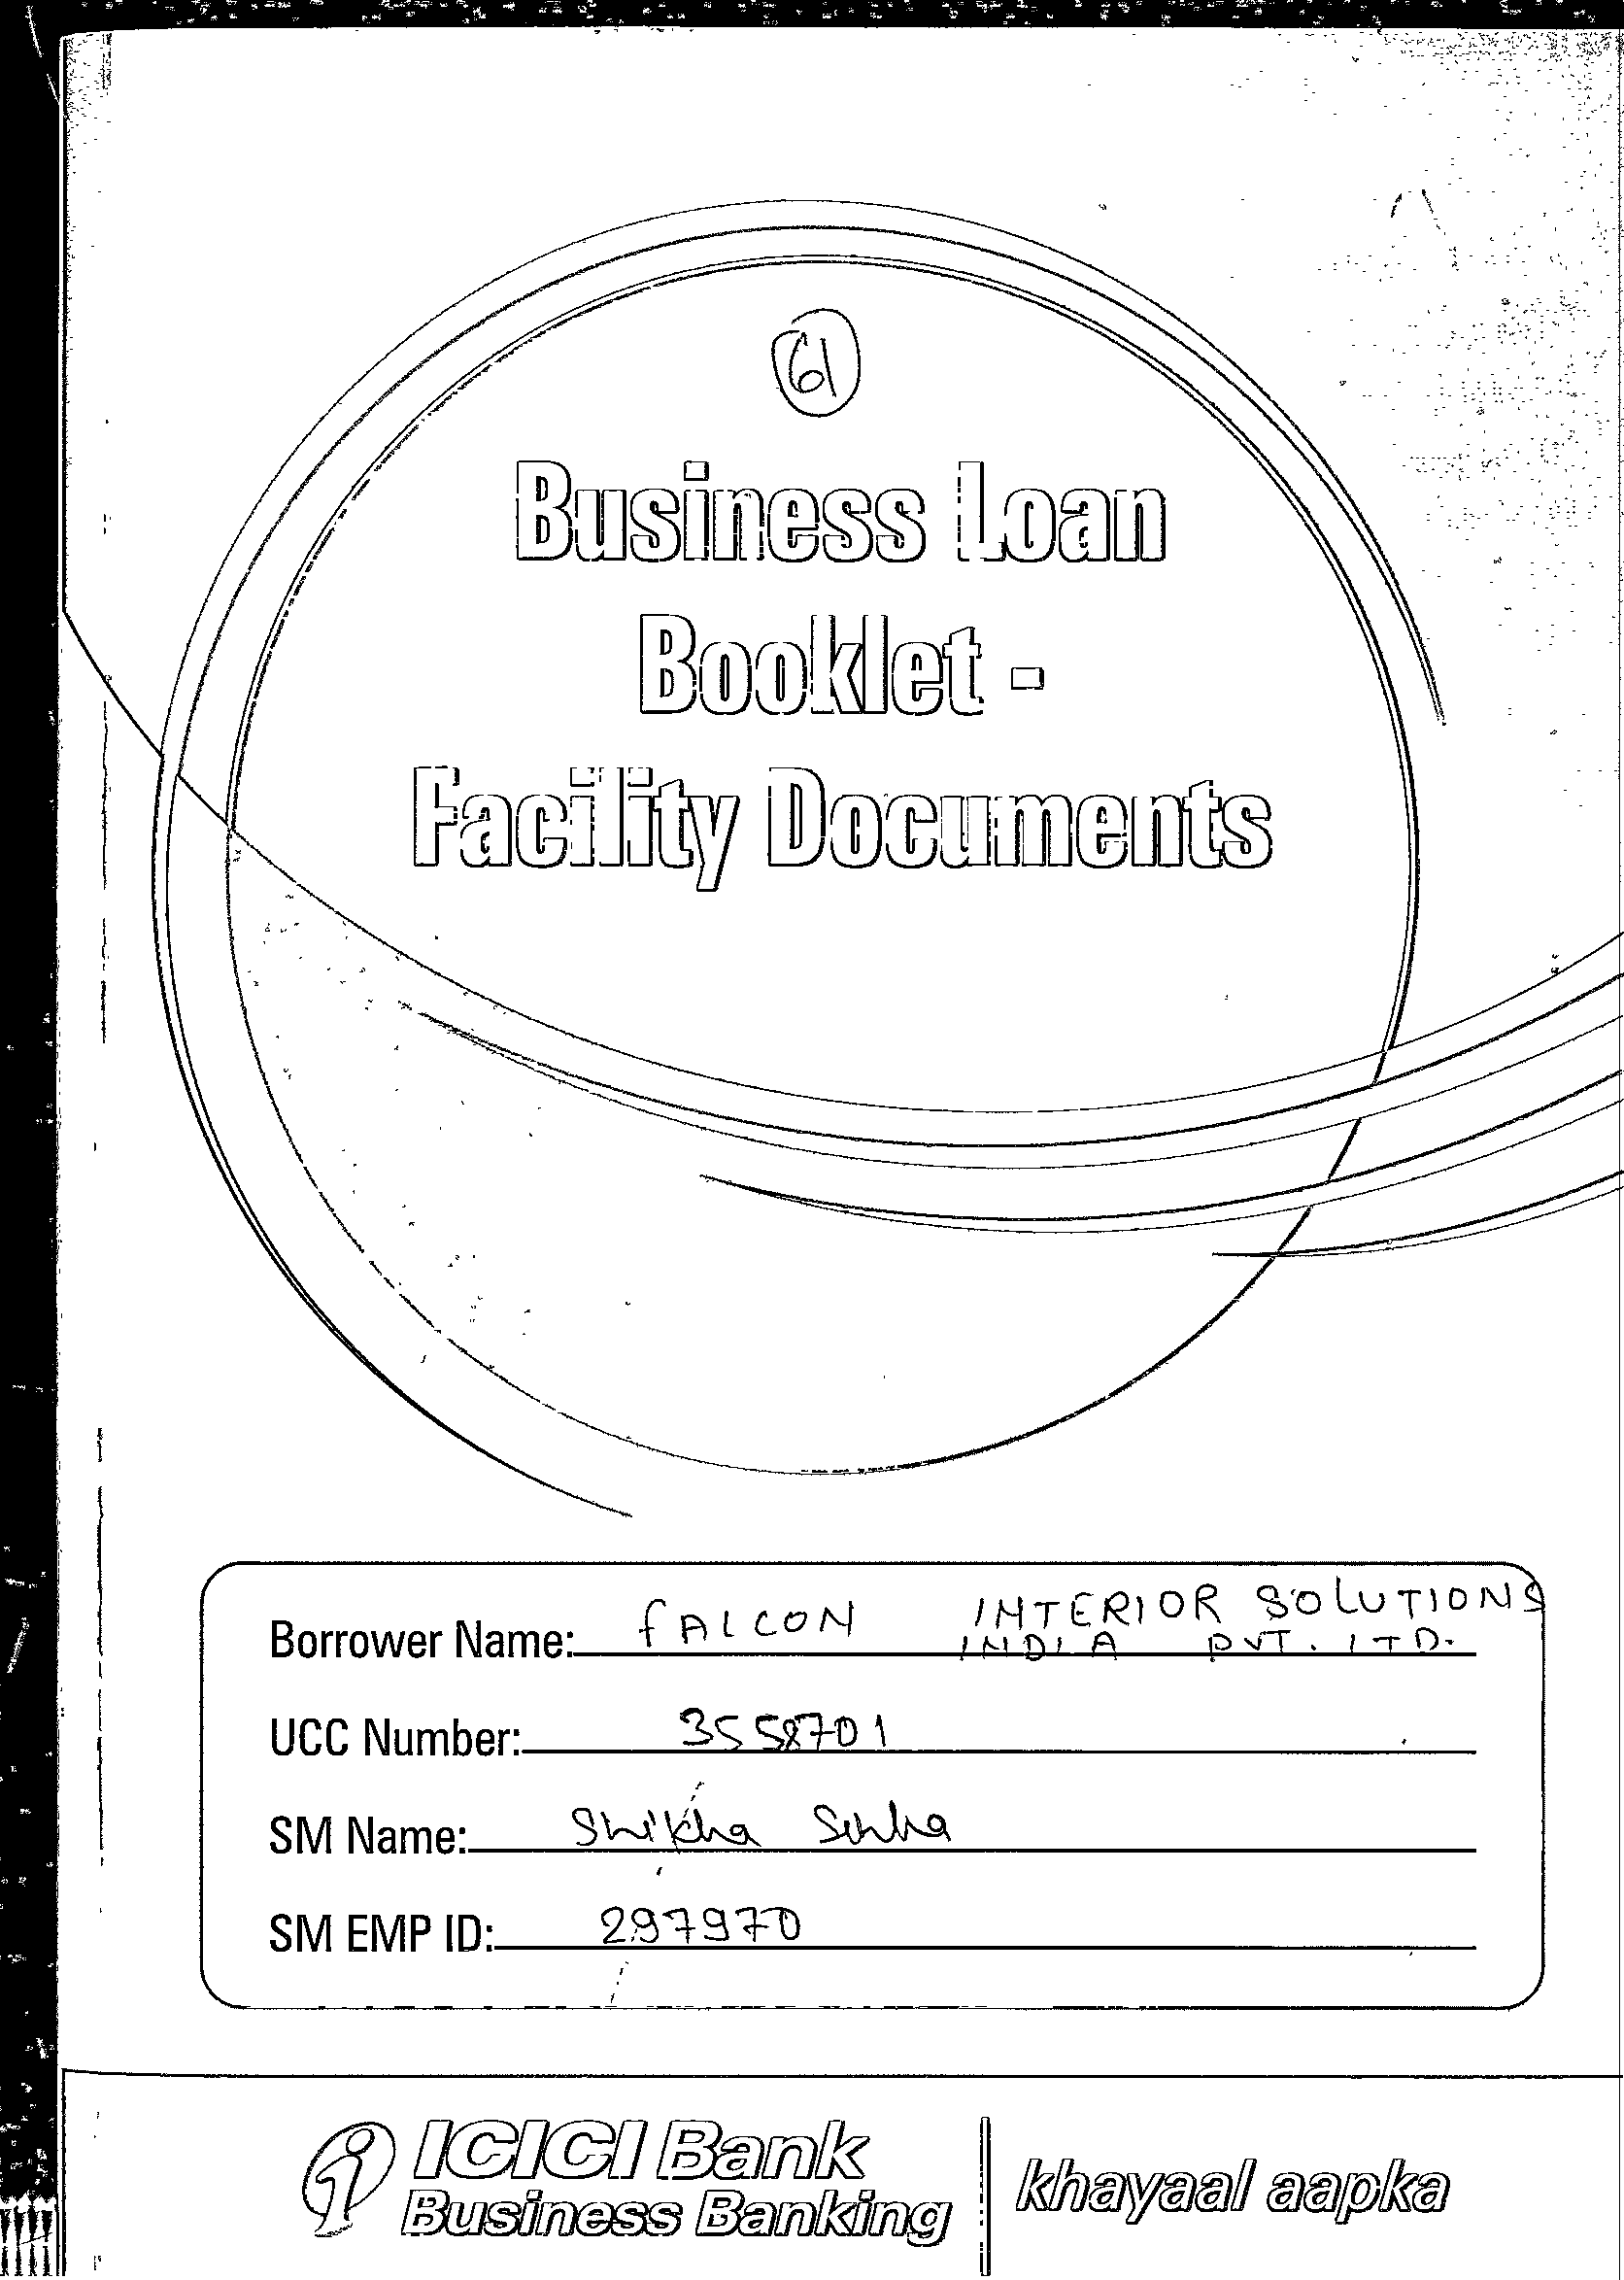 61
Business Loan
Booklet -
Facility Documents
Borrower Name: fALCON INTERIOR SOLUTIONS
INDIA PVT. LTD.
UCC Number: 3558701
SM Name: Shikha Sinha
SM EMP ID: 297970
ICICI Bank
Business Banking
khayaal aapka